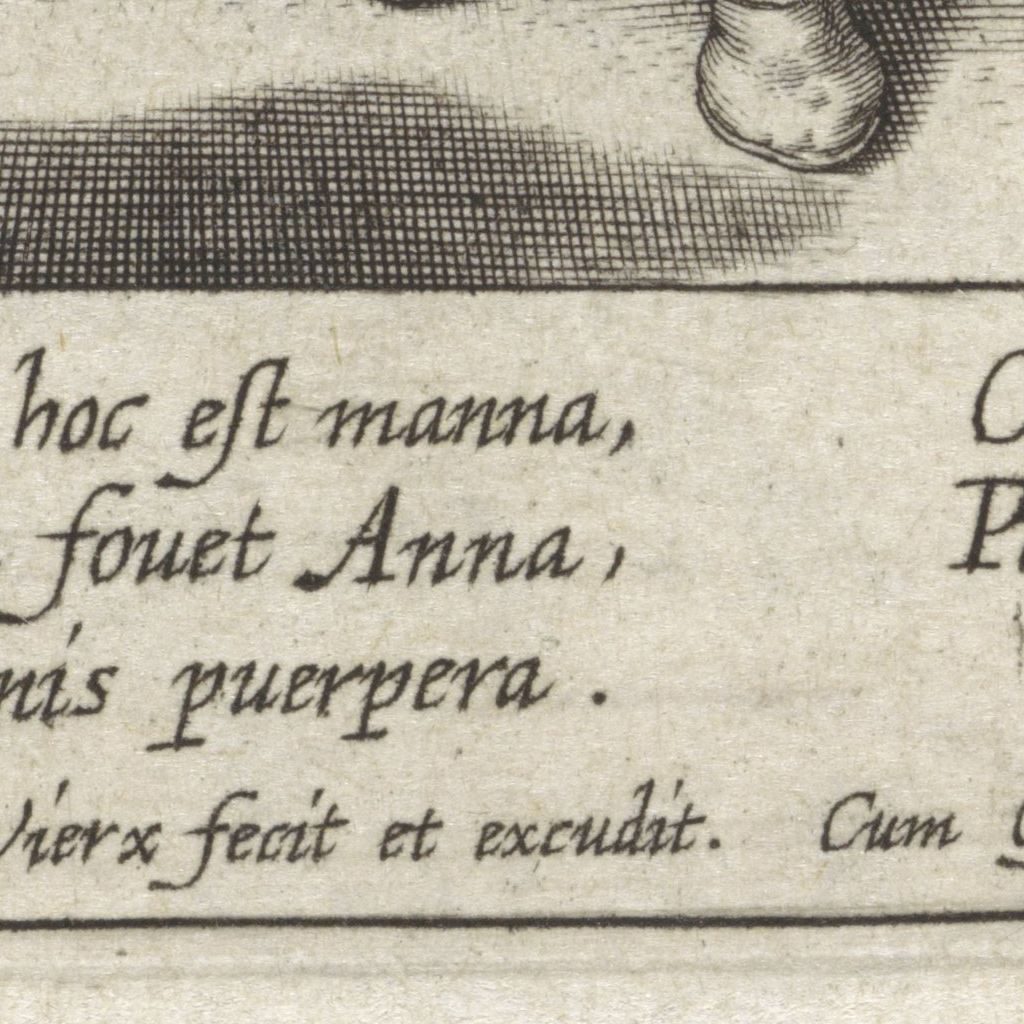 hoc est manna,
fouet Anna,
puerpera.
fecit et excudit. Cum